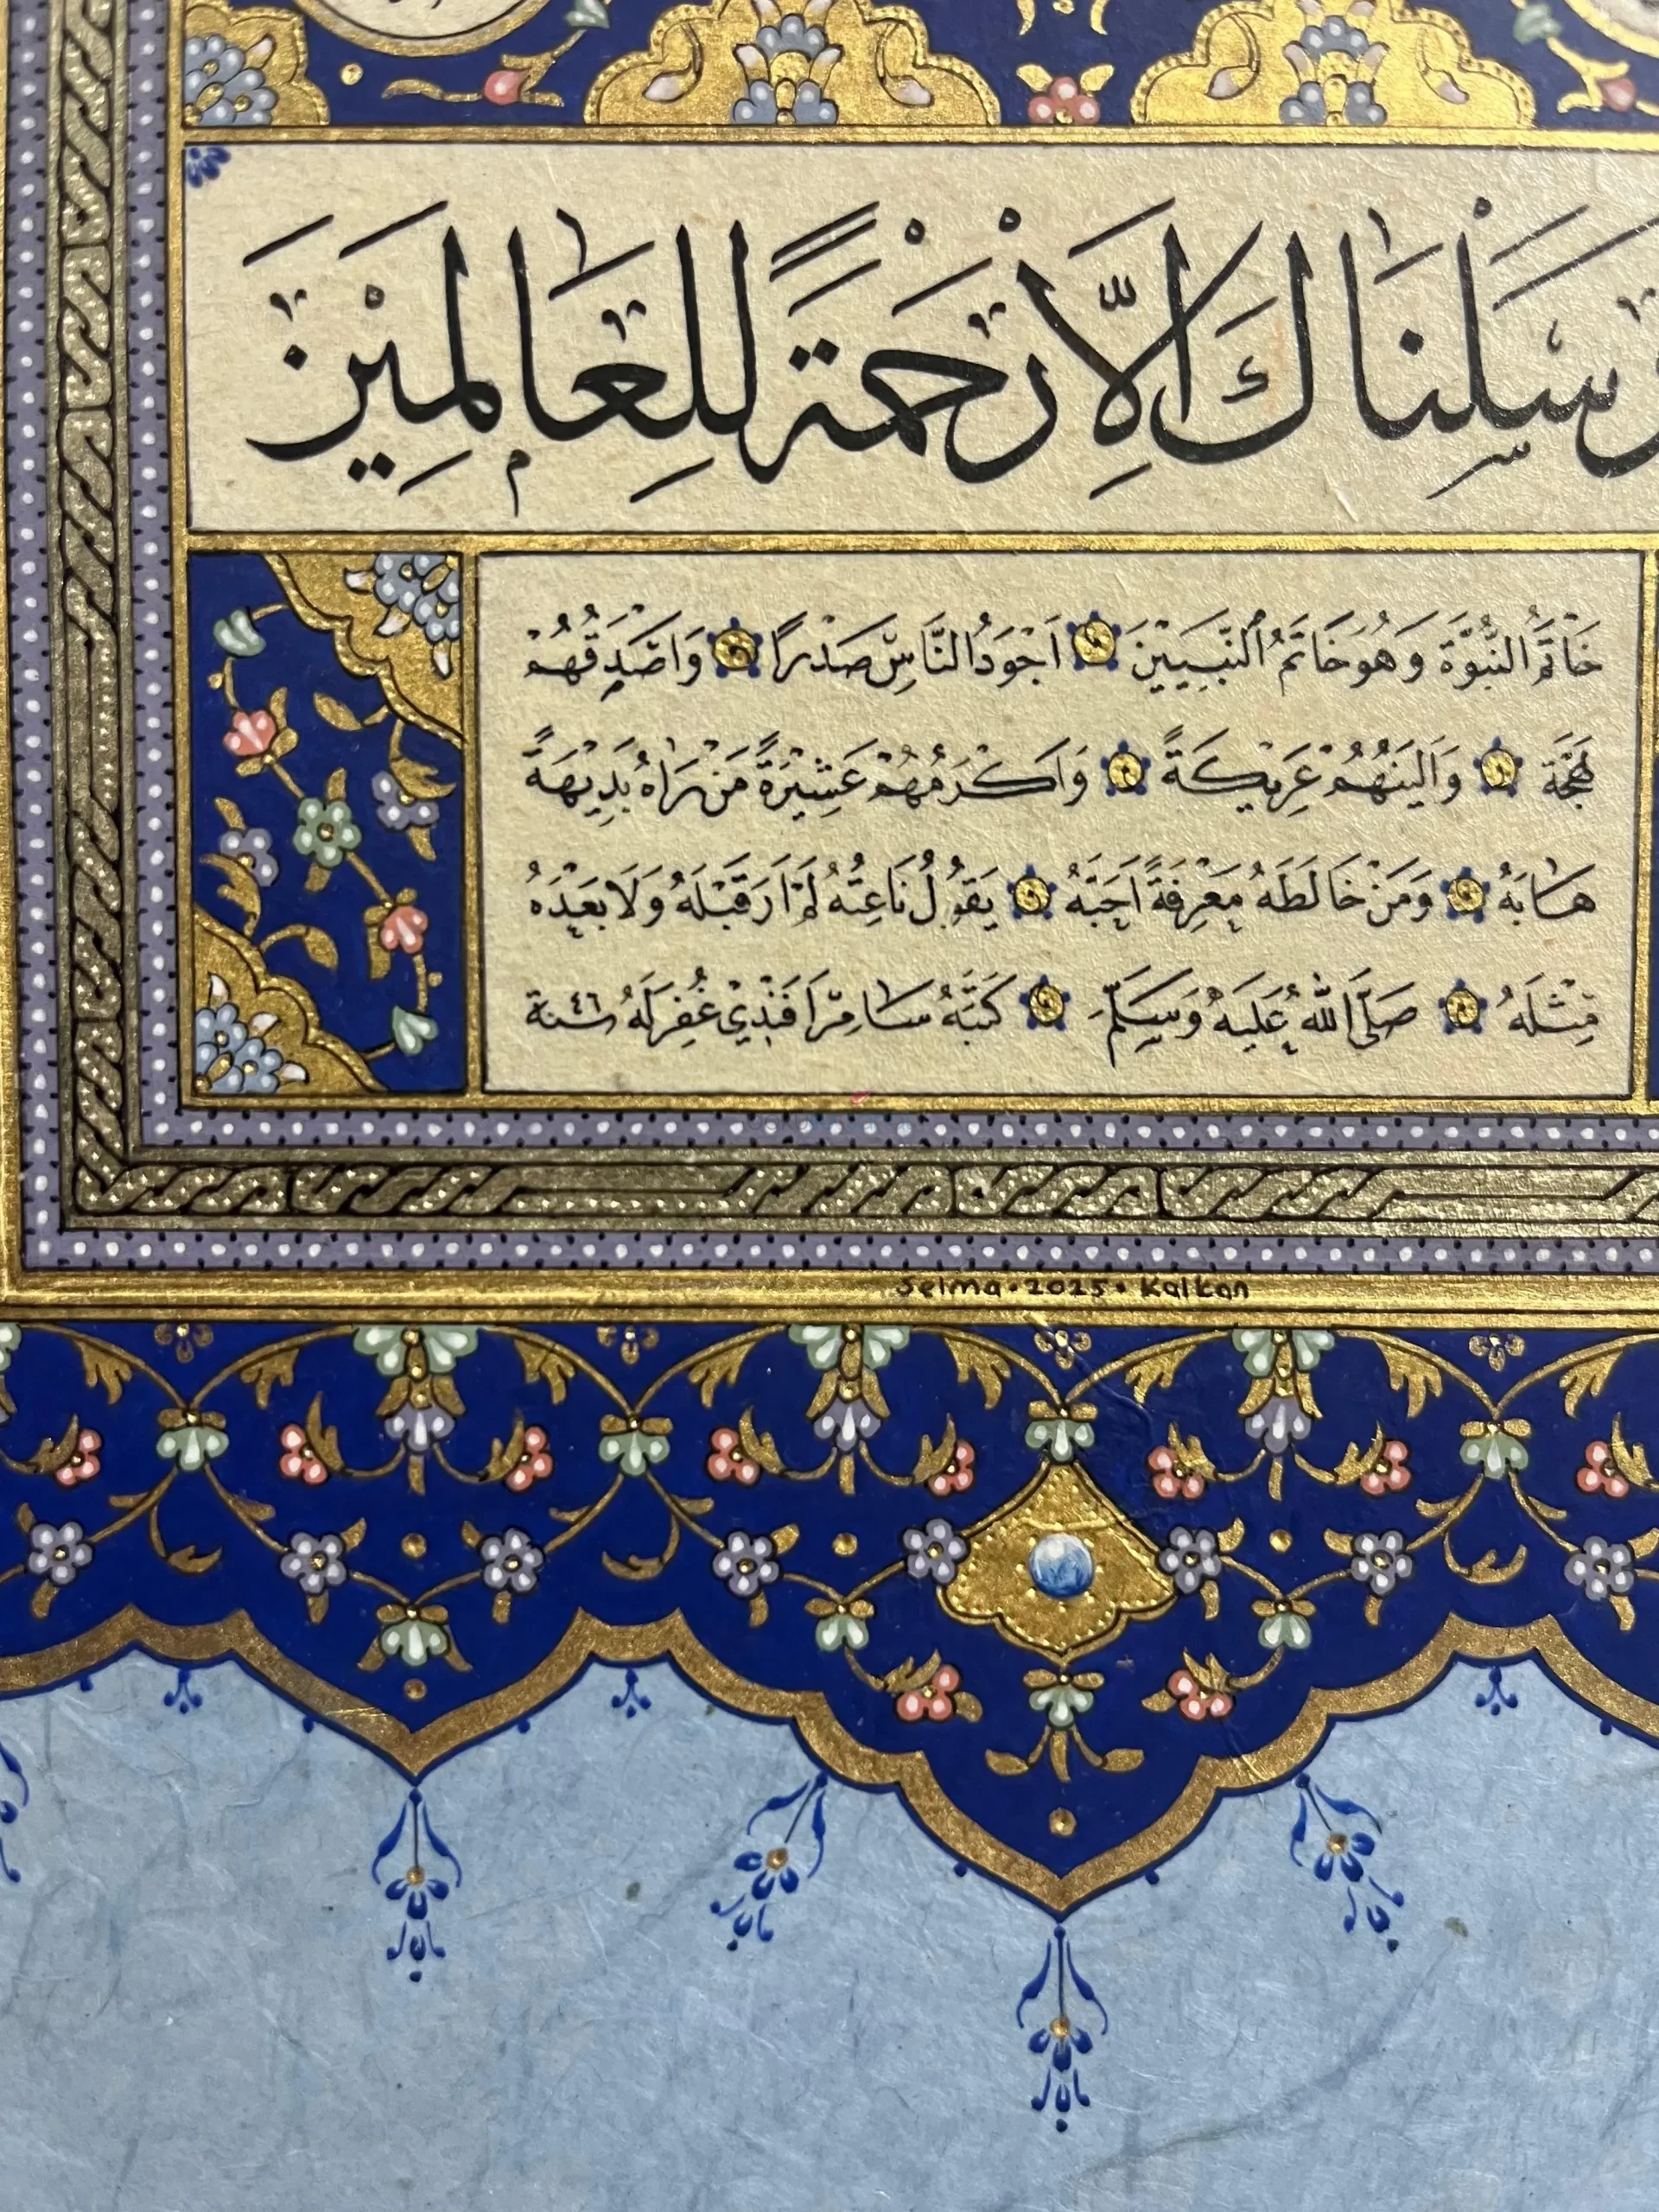 رْسَلْنَاكَ اِلَّا رَحْمَةً لِلْعَالَمِينَ
خَاتَمُ النُّبُوَّةِ وَهُوَ خَاتَمُ النَّبِيِّينَ اَجْوَدُ النَّاسِ صَدْرًا وَاَصْدَقُهُمْ
لَهْجَةً وَاَلْيَنُهُمْ عَرِيكَةً وَاَكْرَمُهُمْ عَشِيْرَةً مَنْ رَاٰهُ بَدِيهَةً
هَابَهُ وَمَنْ خَالَطَهُ مَعْرِفَةً اَحَبَّهُ يَقُولُ نَاعِتُهُ لَمْ اَرَ قَبْلَهُ وَلَا بَعْدَهُ
مِثْلَهُ صَلَّى اللّٰهُ عَلَيْهِ وَسَلَّمَ كَتَبَهُ سَامِرْ اَفَنْدِي غُفِرَلَهُ سنة ٤٦
Selma • 2025 • Kalkan